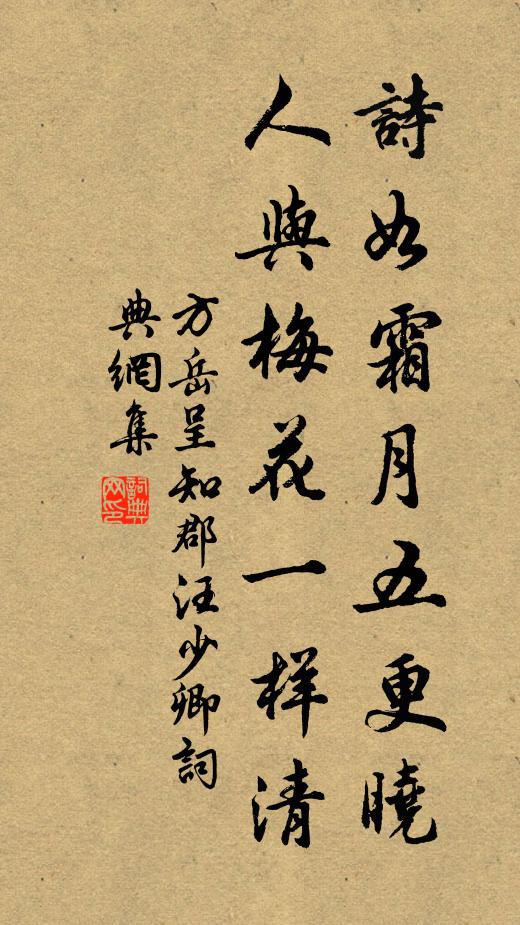 詩如霜月五更曉
人與梅花一样清
方岳呈知郡汪少卿詞
典網集
詞典
网印